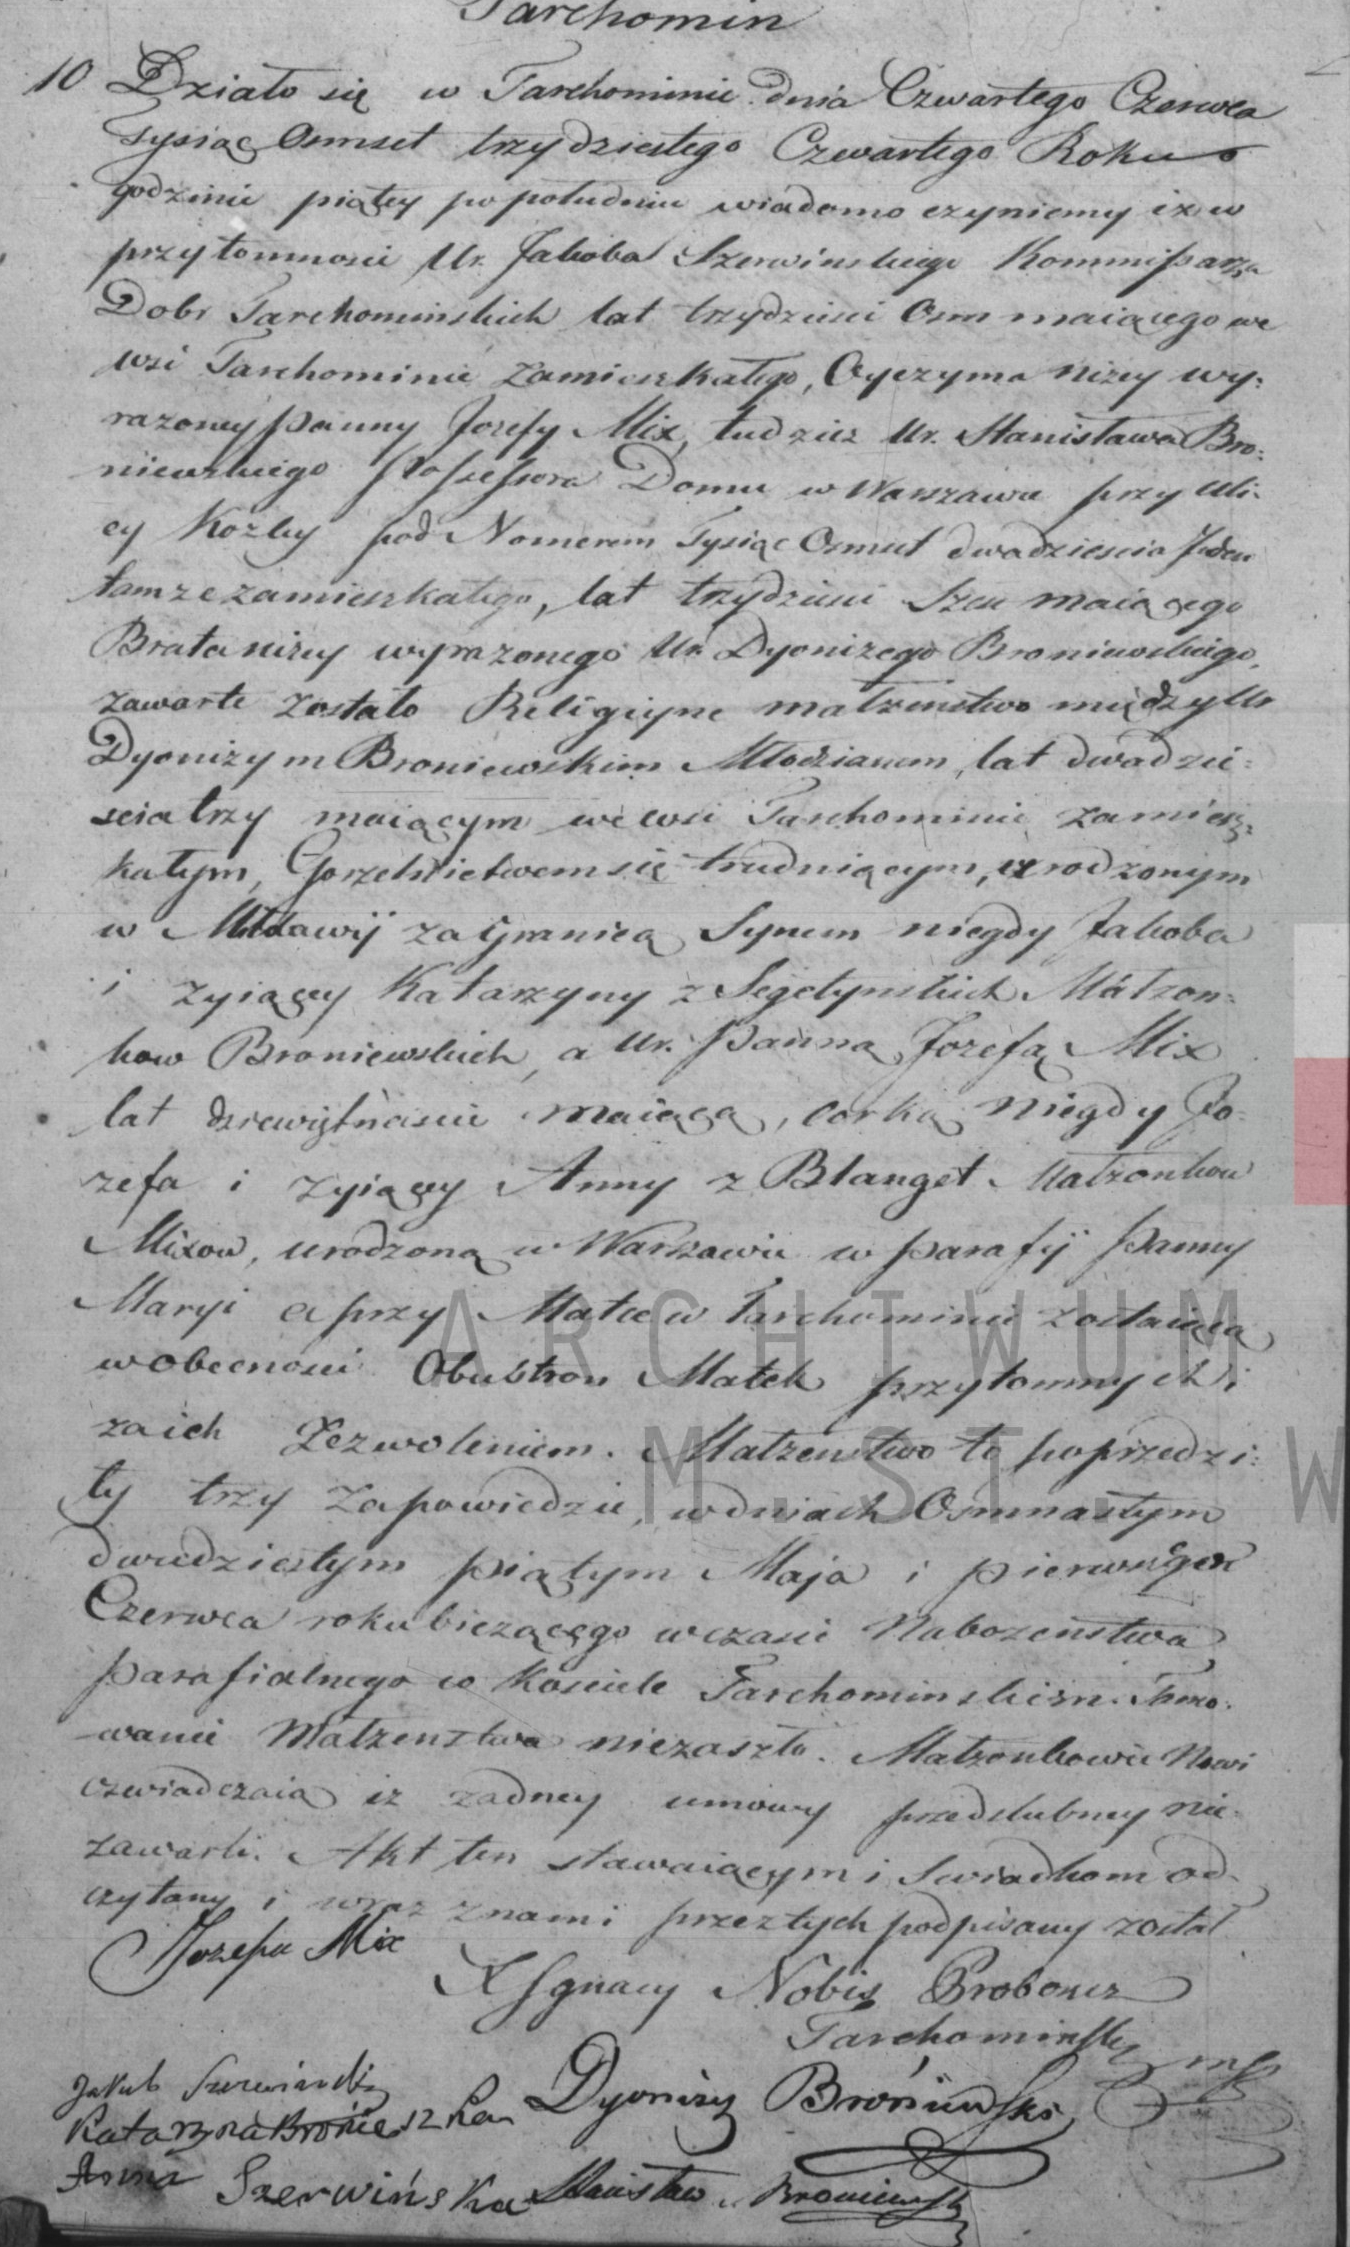 Tarchomin
10 Działo się w Tarchominie dnia Czwartego Czerwca
Tysiąc Osmset trzydziestego Czwartego Roku o
godzinie piątey po południu wiadomo czyniemy iż w
przytomnosci Ur. Jakoba Szerwinskiego Kommissarza
Dobr Tarchominskich lat trzydziesci Osm maiącego we
wsi Tarchominie zamieszkałego, Oyczyma niżey wy:
rażoney Panny Jozefy Mix, tudzież Ur. Stanisława Bro:
niewskiego Possessora Domu w Warszawie przy uli:
cy Koźley pod Nomerem Tysiąc Osmset dwadziescia Jeden
tamże zamieszkałego, lat trzydziesci Szesc maiącego
Brata niżey wyrażonego Ur. Dyonizego Broniewskiego,
zawarte zostało Religiyne małżenstwo między Ur.
Dyonizym Broniewskim Młodzianem, lat dwadzie:
scia trzy maiącym we wsi Tarchominie zamiesz:
kałym, Gorzelnictwem się trudniącym, urodzonym
w Mołdawij za Granicą Synem niegdy Jakoba
i żyiącey Katarzyny z Segetynskich Małżon:
kow Broniewskich, a Ur. Panną Jozefą Mix
lat dziewiętnascie maiącą, corką niegdy Jo:
zefa i żyiącey Anny z Blanget Małżonkow
Mixow, urodzoną w Warszawie w parafij Panny
Maryi a przy Matce w Tarchominie zostaiącą
w obecnosci Obustron Matek przytomnych i
za ich Zezwoleniem. Małżenstwo to poprzedzi:
ły trzy Zapowiedzie, w dniach Osmnastym
dwudziestym piątym Maja i pierwszym
Czerwca roku bieżącego w czasie Nabożenstwa
parafialnego w Kosciele Tarchominskiem. Tamo:
wanie Małżenstwa nie zaszło. Małżonkowie Nowi
oswiadczaią iż żadney umowy przedslubney nie
zawarli. Akt ten stawaiącym i Swiadkom od
czytany i wraz z nami przez tych podpisany został
Jozefa Mix
X Ignacy Nobis Proboszcz
Tarchominski mp
Jakub Szerwiński
Dyonizy Broniewski
Katarzyna Bronieszka
Anna Szerwińska Stanisław Broniewski
ARCHIWUM
M. ST. W